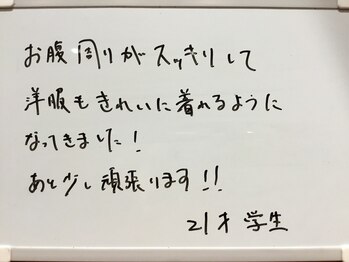 お腹周りがスッキリして
洋服もきれいに着れるように
なってきました!
あと少し頑張ります!!
21才 学生